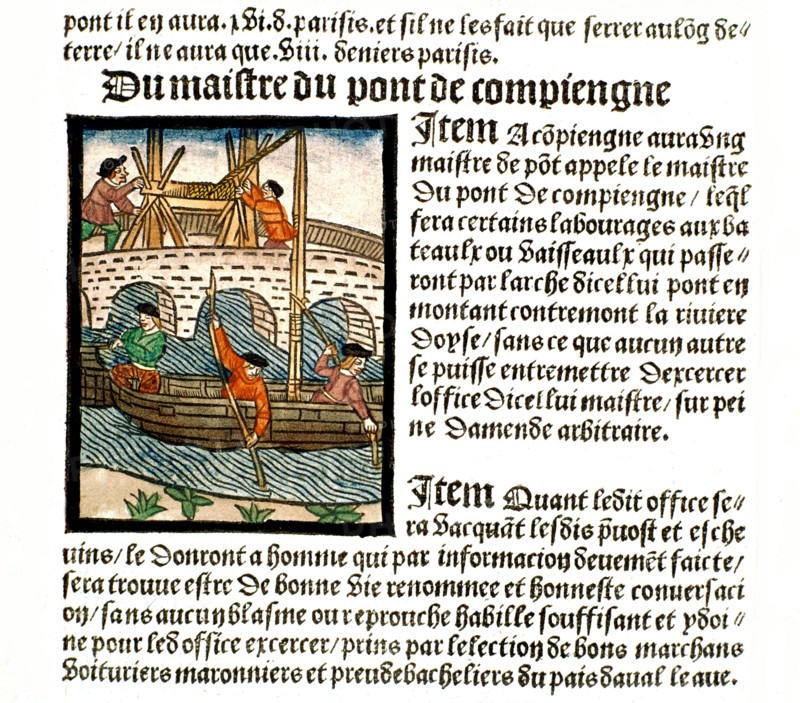 pont il en aura .xvi. d. parisis. et sil ne les fait que serrer au lõg de//
terre/ il ne aura que .viii. deniers parisis.
Du maistre du pont de compiengne
Item A cõpiengne aura vng
maistre de põt appele le maistre
Du pont De compiengne / leq̃l
fera certains labourages aux ba
teaulx ou Vaisseaulx qui passe//
ront par larche dicellui pont en
montant contremont la riuiere
Doyse/ sans ce que aucun autre
se puisse entremettre Dexcercer
loffice Dicellui maistre/ sur pei
ne Damende arbitraire.
Item Quant ledit office se//
ra Vacquãt lesdis p̃uost et esche
uins/ le Donront a homme qui par informacion deuemẽt faicte/
sera trouue estre De bonne Vie renommee et honneste conuersaci
on/ sans aucun blasme ou reprouche habille souffisant et ydoi//
ne pour led office excercer/ prins par lelection de bons marchans
Voituriers maronniers et preudebacheliers du pais daual leaue.